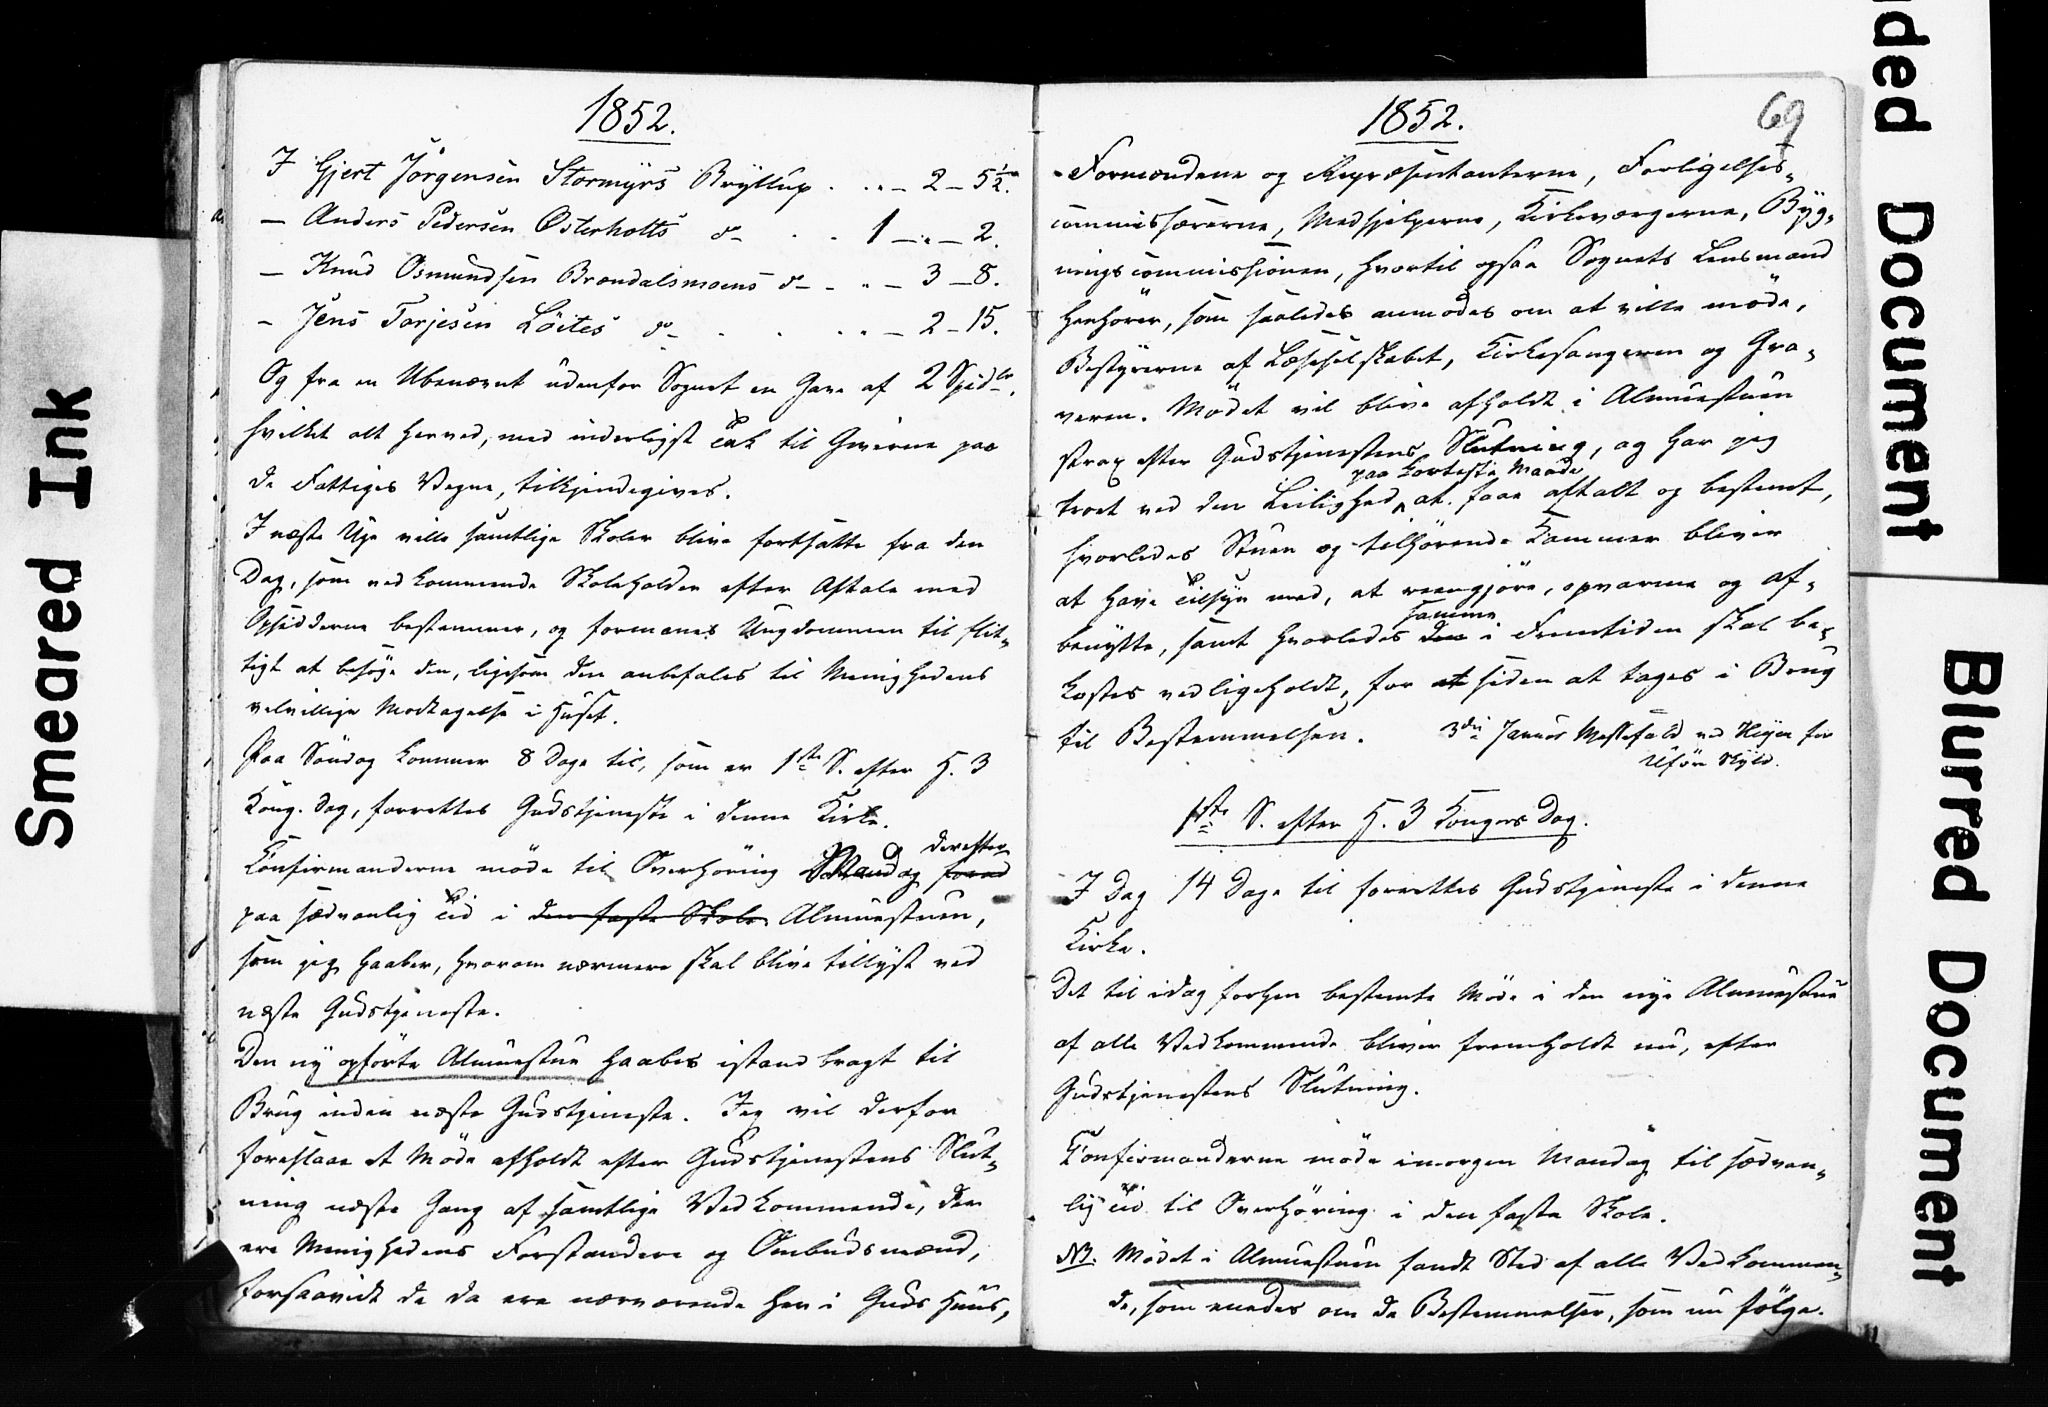 1852.
I Gjert Jörgensen Stormyrs Bryllup . . „ — 2 — 5½.
— Anders Pedersen Østerholts do — . . 1 — „ — 2.
— Knud Osmundsen Brændalsmoens do — . „ — 3 — 8.
— Jens Torjesen Löites do — . . „ — 2 — 15.
Og fra en Ubenævnt udenfor Sognet en Gave af 2 Spidlr,
hvilket alt herved, med inderligst Tak til Giverne paa
de Fattiges Vegne, tilkjendegives.
I næste Uge ville samtlige Skoler blive fortsatte fra den
Dag, som vedkommende Skoleholder efter Aftale med
Opsidderne bestemmer, og formanes Ungdommen til flit-
tigt at besøge den, ligesom den anbefales til Menighedens
velvillige Modtagelse i Huset.
Paa Søndag kommer 8 Dage til, som er 1ste S. efter H. 3
Kong. Dag, forrettes Gudstjeneste i denne Kirke.
derefter
Confirmanderne møde til Overhøring Mandag forud
paa sædvanlig Tid i den faste Skole Almuestuen,
som jeg haaber, hvorom nærmere skal blive tillyst ved
næste Gudstjeneste.
Den ny opførte Almuestue haabes istandbragt til
Brug inden næste Gudstjeneste. Jeg vil derfor
foreslaae et Møde afholdt efter Gudstjenestens Slut-
ning næste Gang af samtlige Vedkommende, der
ere Menighedens Forstandere og Ombudsmænd,
forsaavidt de da ere nærværende her i Guds Huus,
1852.
69
Formændene og Repræsentanterne, Forligelses-
commissærerne, Medhjelperne, Kirkeværgerne, Byg-
ningscommissionen, hvortil ogsaa Sognets Lensmand
henhører, som saaledes anmodes om at ville møde,
Bestyrerne af Læseselskabet, Kirkesangeren og Gra-
veren. Mødet vil blive afholdt i Almuestuen
strax efter Gudstjenestens Slutning, og har jeg
paa korteste Maade
troet ved den Leilighed at faae aftalt og bestemt,
hvorledes Stuen og tilhørende Kammer bliver
at have Tilsyn med, at reengjøre, opvarme og af-
samme
benytte, samt hvorledes den i Fremtiden skal be-
kostes vedligeholdt, for at siden at tages i Brug
til Bestemmelsen. 3die Januar Messefald ved Heien for
Uför Skyld.
1ste S. efter H. 3 Kongers Dag.
I Dag 14 Dage til forrettes Gudstjeneste i denne
Kirke.
Det til idag forhen bestemte Møde i den nye Almuestue
af alle Vedkommende bliver fremholdt nu, efter
Gudstjenestens Slutning.
Confirmanderne møde imorgen Mandag til sædvan-
lig Tid til Overhøring i den faste Skole.
NB. Mødet i Almuestuen fandt Sted af alle Vedkommen-
de, som enedes om de Bestemmelser, som nu følge.
Smeared Ink
Document
Blurred Document